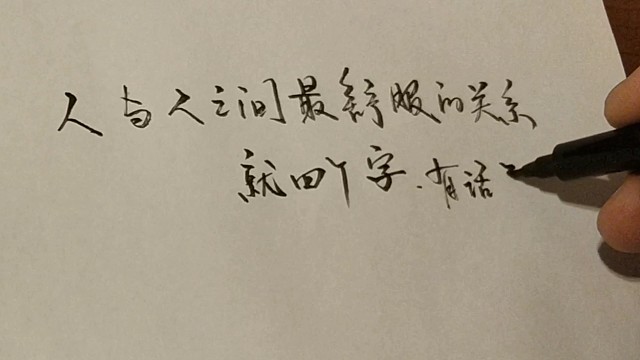 人与人之间最舒服的关系
就四个字.有话